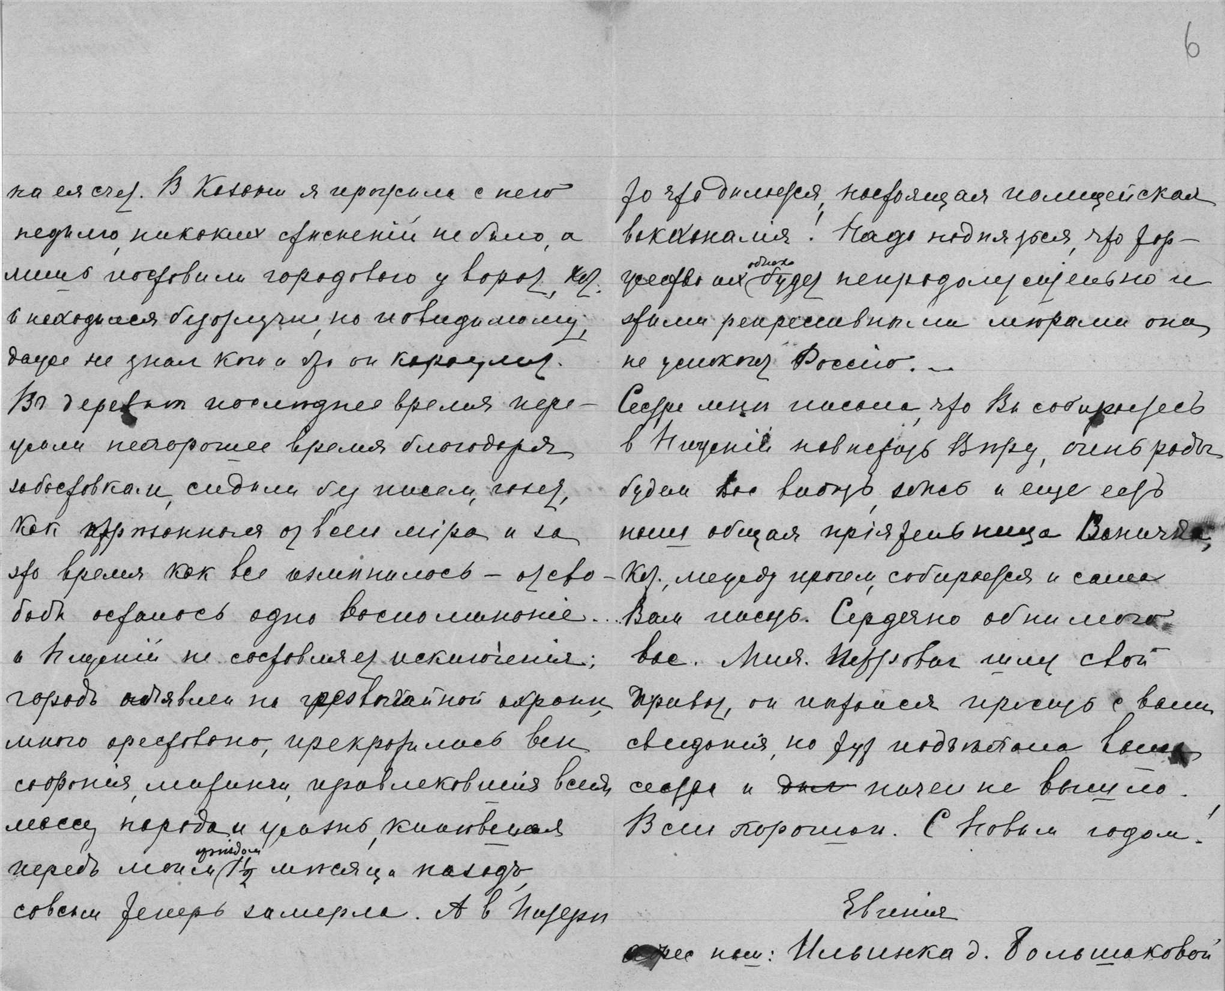 на ея счет. В Казани я прожила с нею
неделю, никаких стеснений не было, а
лишь поставили городового у ворот, кот.
и находился безотлучно, но повидимому,
даже не знал кого и что он караулит.
Въ деревне последнее время пере-
жили нехорошее время благодаря
забастовкам, сидели без писем, газет,
как отрезанныя от всего міра и за
это время как все изменилось – от сво-
боды осталось одно воспоминаніе...
и Нижній не составляет исключенія;
городъ объявлен на чрезвычайной охране,
много арестовано, прекратились все
собранія, митинги, привлекавшія всегда
массу народа и жизнь, кипевшая
передъ моим отъездом 1½ месяца назадъ,
совсем теперь замерла. А в Питере
6
то что делается, настоящая полицейская
вакханалия! Надо надеяться, что тор-
жество их однако будет непродолжительно и
этими репрессивными мерами они
не успокоят Россию. –
Сестра мне писала, что Вы собираетесь
в Нижній навестить Веру, очень рады
будем вас видеть, здесь и еще есть
наша общая пріятельница Ваничка,
кот., между прочем, собирается и сама
Вам писать. Сердечно обнимаю
вас. Мих. Петрович шлет свой
привет, он пытался просить с вами
свиданія, но тут подъехала ваша
сестра и дал ничего не вышло.
Всего хорошаго. С Новым годом!
Евгенія
адрес наш: Ильинка д. Большаковой